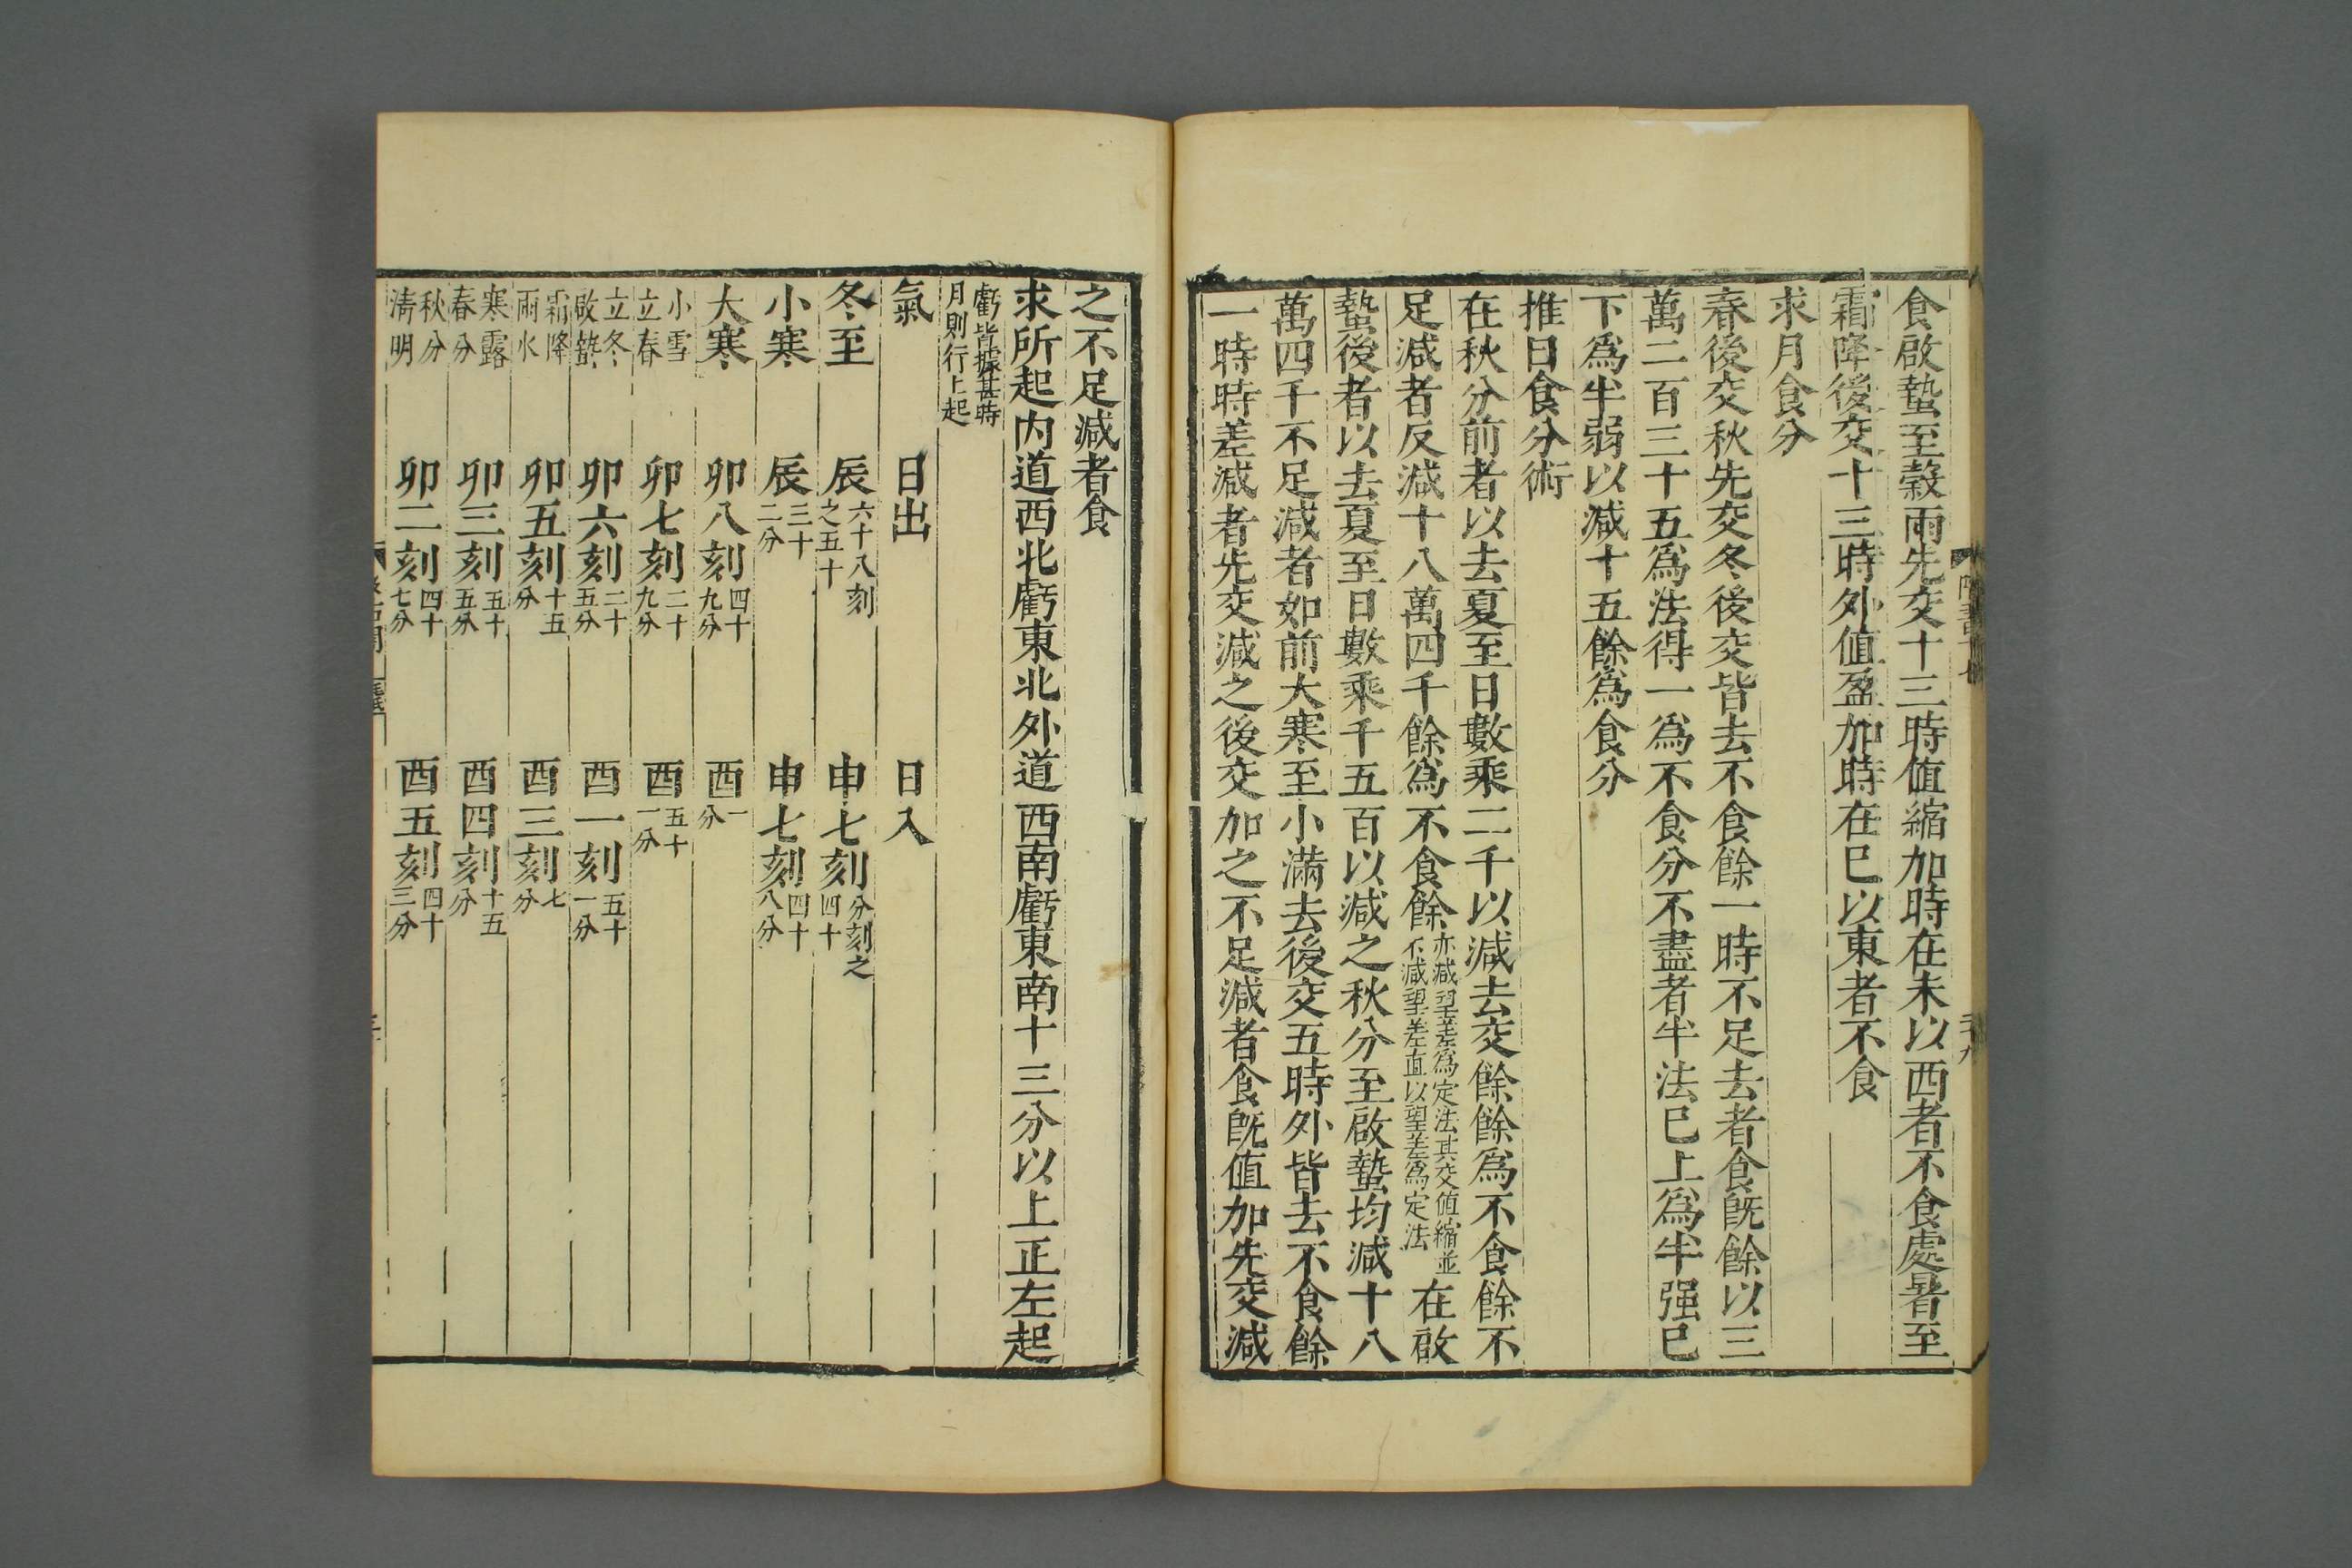 食啟蟄至榖雨先交十三時值縮加時在未以西者不食處暑至
霜降後交十三時外值盈加時在巳以東者不食
求月食分
春後交秋先交冬後交皆去不食餘一時不足去者食既餘以三
萬二百三十五爲法得一爲不食分不盡者半法已上爲半强已
下爲半弱以減十五餘爲食分
推日食分術
在秋分前者以去夏至日數乘二千以減去交餘餘爲不食餘不
足減者反減十八萬四千餘爲不食餘亦減望差爲定法其交值縮並不減望差直以望差爲定法在啟
蟄後者以去夏至日數乘千五百以減之秋分至啟蟄均減十八
萬四千不足減者如前大寒至小滿去後交五時外皆去不食餘
一時時差減者先交減之後交加之不足減者食既值加先交減
之不足減者食
求所起内道西北虧東北外道西南虧東南十三分以上正左起
虧皆據甚時
月則行上起
氣 日出 日入
冬至 辰六十八刻之五十 申七刻分刻之四十
小寒 辰三十二分 申七刻四十八分
大寒 卯八刻四十九分 酉一分
小雪立春 卯七刻二十九分 酉五十一分
立冬啟蟄 卯六刻二十五分 酉一刻五十一分
霜降雨水 卯五刻十五分 酉三刻七分
寒露春分 卯三刻五十五分 酉四刻十五分
秋分清明 卯二刻四十七分 酉五刻四十三分